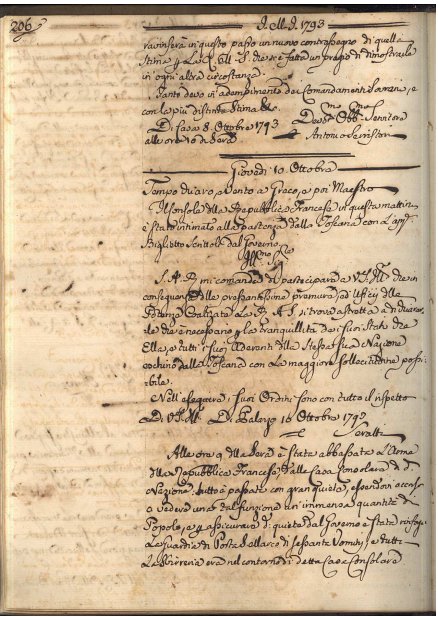 206
I. M. I. 1793
ravviserà in questo passo un nuovo contrassegno di quella
Stima
in ogni altra circostanza.
Tanto devo in adempimento dei Comandamenti Sovrani, e
con la più distinta Stima
Di Casa 8. Ottobre 1793
alle ore 10 di Sera
Antonio Serristori
Giovedì 10. Ottobre
Tempo vario e Vento a Greco, e poi Maestro
Il Console della Repubblica Francese in questa mattina
è stato intimato alla partenza dalla Toscana con l'app.
Biglietto scrittoli dal Governo.
Ill.mo Sig.
S. A. R. mi comanda di partecipare a V. S. Ill. che in
conseguenza delle pressantissime premure, ed Uffizij delle
Potenze Coalizate La R. A. S. si trova astretta a dichiarar-
le che è necessario p la tranquillità dei suoi Stati che
Ella, e tutti i suoi Aderenti della Stessa sua Nazione
eschino dalla Toscana con la maggiore sollecitudine possi-
bile.
Nell'eseguire i suoi Ordini sono con tutto il rispetto
Di V. S. Ill. Di Palazzo 10 Ottobre 1793
Seratti
Alle ore 9 della Sera è stata abbassata l'Arme
della Repubblica Francese dalle Casa Consolare di d.
Nazione: tutto è passato con gran quiete, essendovi accorso
a vedere una tal funzione un'immensa quantità di
Popolo, e p assicurare di quiete dal Governo è stata rinforz.
La Guardia di Porta Colla di sessanta Uomini, e tutta
La Sbirreria era nel contorno di detta Casa Consolare